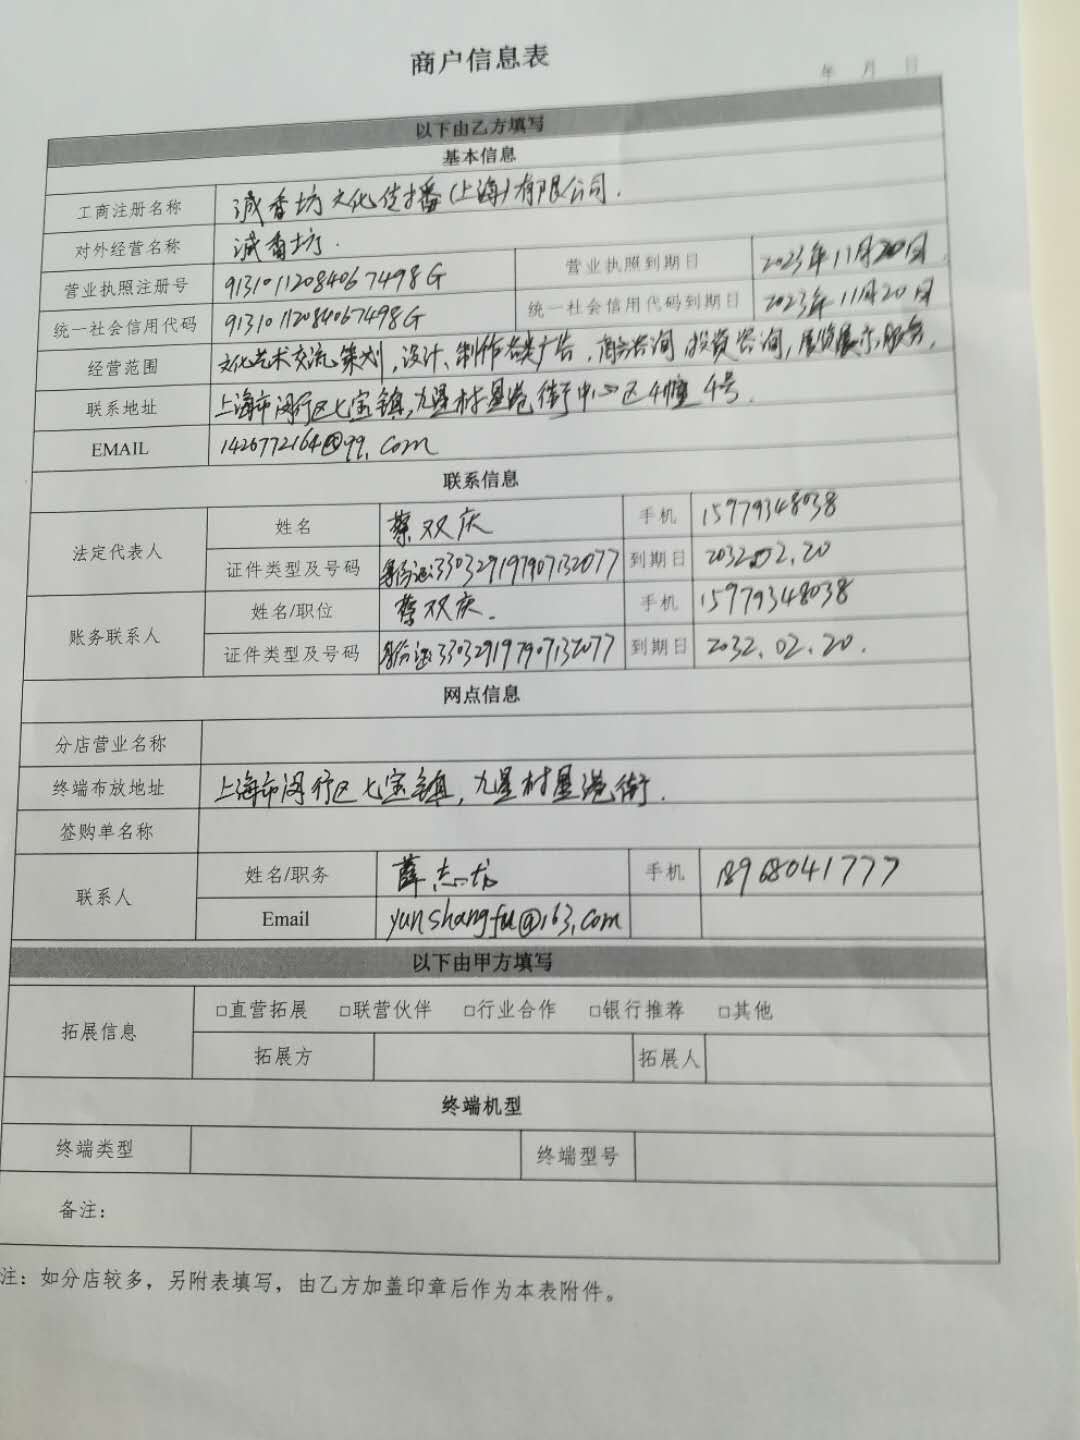 商户信息表
年 月 日
以下由乙方填写
基本信息
工商注册名称 诚香坊文化传播(上海)有限公司.
对外经营名称 诚香坊.
营业执照注册号 91310112084067498G 营业执照到期日 2023年11月20日
统一社会信用代码 91310112084067498G 统一社会信用代码到期日 2023年11月20日
经营范围 文化艺术交流策划,设计、制作各类广告,商务咨询,投资咨询,展览展示服务.
联系地址 上海市闵行区七宝镇,九星村星港街中心区4幢4号.
EMAIL 1426772164@qq.com
联系信息
法定代表人 姓名 蔡双庆 手机 15979348038
证件类型及号码 身份证:330329197907132077 到期日 2032.02.20
账务联系人 姓名/职位 蔡双庆. 手机 15979348038
证件类型及号码 身份证:330329197907132077 到期日 2032.02.20.
网点信息
分店营业名称
终端布放地址 上海市闵行区七宝镇,九星村星港街.
签购单名称
联系人 姓名/职务 薛志龙 手机 18968041777
Email yunshangfu@163.com
以下由甲方填写
拓展信息 □直营拓展 □联营伙伴 □行业合作 □银行推荐 □其他
拓展方 拓展人
终端机型
终端类型 终端型号
备注:
注:如分店较多,另附表填写,由乙方加盖印章后作为本表附件。